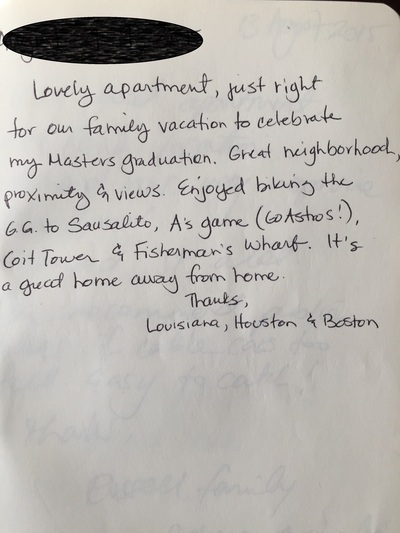 Lovely apartment, just right
for our family vacation to celebrate
my Masters graduation. Great neighborhood,
proximity & views. Enjoyed biking the
G.G. to Sausalito, A's game (Go Astros!),
Coit Tower & Fisherman's Wharf. It's
a great home away from home.
Thanks,
Louisiana, Houston & Boston